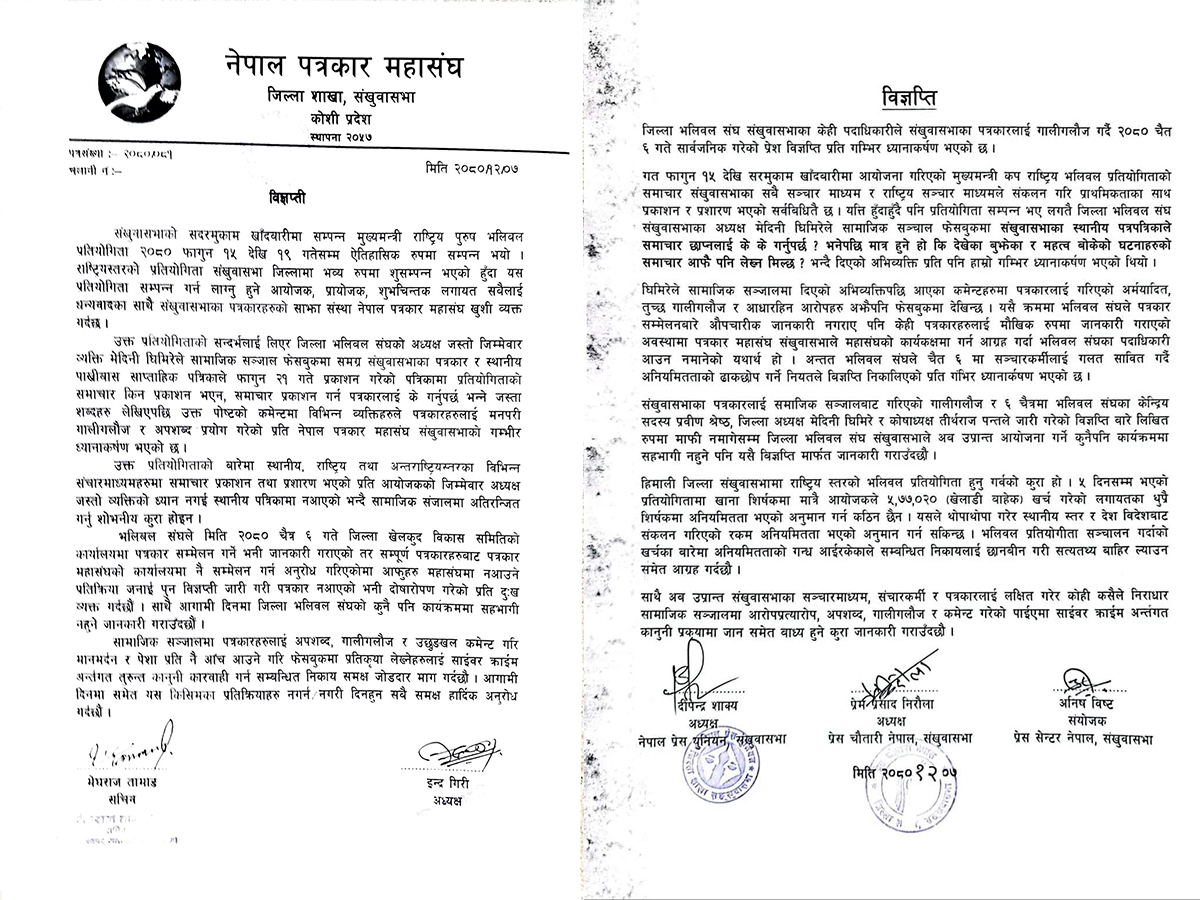 नेपाल पत्रकार महासंघ
जिल्ला शाखा, संखुवासभा
कोशी प्रदेश
स्थापना २०५७
पत्रसंख्या :- २०८०/०८१
चलानी नं :-
मिति २०८०/१२/०७
विज्ञप्ती
संखुवासभाको सदरमुकाम खाँदवारीमा सम्पन्न मुख्यमन्त्री राष्ट्रिय पुरुष भलिवल
प्रतियोगिता २०८० फागुन १५ देखि १९ गतेसम्म ऐतिहासिक रुपमा सम्पन्न भयो ।
राष्ट्रियस्तरको प्रतियोगिता संखुवासभा जिल्लामा भव्य रुपमा शुसम्पन्न भएको हुँदा यस
प्रतियोगिता सम्पन्न गर्न लाग्नु हुने आयोजक, प्रायोजक, शुभचिन्तक लगायत सवैलाई
धन्यवादका साथै संखुवासभाका पत्रकारहरुको साझा संस्था नेपाल पत्रकार महासंघ खुशी व्यक्त
गर्दछ ।
उक्त प्रतियोगिताको सन्दर्भलाई लिएर जिल्ला भलिवल संघको अध्यक्ष जस्तो जिम्मेवार
व्यक्ति मेदिनी घिमिरेले सामाजिक सञ्जाल फेसबुकमा समग्र संखुवासभाका पत्रकार र स्थानीय
पाखीवास साप्ताहिक पत्रिकाले फागुन २१ गते प्रकाशन गरेको पत्रिकामा प्रतियोगिताको
समाचार किन प्रकाशन भएन, समाचार प्रकाशन गर्न पत्रकारलाई के गर्नुपर्छ भन्ने जस्ता
शब्दहरु लेखिएपछि उक्त पोष्टको कमेन्टमा विभिन्न व्यक्तिहरुले पत्रकारहरुलाई मनपरी
गालीगलौज र अपशब्द प्रयोग गरेको प्रति नेपाल पत्रकार महासंघ संखुवासभाको गम्भीर
ध्यानाकर्षण भएको छ ।
उक्त प्रतियोगिताको बारेमा स्थानीय, राष्ट्रिय तथा अन्तराष्ट्रियस्तरका विभिन्न
संचारमाध्यमहरुमा समाचार प्रकाशन तथा प्रशारण भएको प्रति आयोजकको जिम्मेवार अध्यक्ष
जस्तो व्यक्तिको ध्यान नगई स्थानीय पत्रिकामा नआएको भन्दै सामाजिक संजालमा अतिरन्जित
गर्नु शोभनीय कुरा होइन ।
भलिबल संघले मिति २०८० चैत्र ६ गते जिल्ला खेलकुद विकास समितिको
कार्यालयमा पत्रकार सम्मेलन गर्ने भनी जानकारी गराएको तर सम्पूर्ण पत्रकारहरुबाट पत्रकार
महासंघको कार्यालयमा नै सम्मेलन गर्न अनुरोध गरिएकोमा आफुहरु महासंघमा नआउने
प्रतिक्रिया जनाई पुन विज्ञप्ती जारी गरी पत्रकार नआएको भनी दोषारोपण गरेको प्रति दुःख
व्यक्त गर्दछौं । साथै आगामी दिनमा जिल्ला भलिवल संघको कुनै पनि कार्यक्रममा सहभागी
नहुने जानकारी गराउँदछौं ।
सामाजिक सञ्जालमा पत्रकारहरुलाई अपशब्द, गालीगलौज र उछुङखल कमेन्ट गरि
मानमर्दन र पेशा प्रति नै आँच आउने गरि फेसबुकमा प्रतिकृया लेख्नेहरुलाई साईवर क्राईम
अर्न्तगत तुरुन्त कानुनी कारवाही गर्न सम्बन्धित निकाय समक्ष जोडदार माग गर्दछौं । आगामी
दिनमा समेत यस किसिमका प्रतिक्रियाहरु नगर्न/नगरी दिनहुन सवै समक्ष हार्दिक अनुरोध
गर्दछौं ।
मेघराज तामाङ
सचिव
इन्द्र गिरी
अध्यक्ष
विज्ञप्ति
जिल्ला भलिवल संघ संखुवासभाका केही पदाधिकारीले संखुवासभाका पत्रकारलाई गालीगलौज गर्दै २०८० चैत
६ गते सार्वजनिक गरेको प्रेश विज्ञप्ति प्रति गम्भिर ध्यानाकर्षण भएको छ ।
गत फागुन १५ देखि सरमुकाम खाँदवारीमा आयोजना गरिएको मुख्यमन्त्री कप राष्ट्रिय भलिवल प्रतियोगिताको
समाचार संखुवासभाका सबै सञ्चार माध्यम र राष्ट्रिय सञ्चार माध्यमले संकलन गरि प्राथमिकताका साथ
प्रकाशन र प्रशारण भएको सर्वविधितै छ । यत्ति हुँदाहुँदै पनि प्रतियोगिता सम्पन्न भए लगतै जिल्ला भलिवल संघ
संखुवासभाका अध्यक्ष मेदिनी घिमिरेले सामाजिक सञ्चाल फेसबुकमा संखुवासभाका स्थानीय पत्रपत्रिकाले
समाचार छाप्नलाई के के गर्नुपर्छ ? भनेपछि मात्र हुने हो कि देखेका बुझेका र महत्व बोकेको घटनाहरुको
समाचार आफै पनि लेख्न मिल्छ ? भन्दै दिएको अभिव्यक्ति प्रति पनि हाम्रो गम्भिर ध्यानाकर्षण भएको थियो ।
घिमिरेले सामाजिक सञ्जालमा दिएको अभिव्यक्तिपछि आएका कमेन्टहरुमा पत्रकारलाई गरिएको अर्मयादित,
तुच्छ गालीगलौज र आधारहिन आरोपहरु अझैपनि फेसबुकमा देखिन्छ । यसै क्रममा भलिवल संघले पत्रकार
सम्मेलनबारे औपचारीक जानकारी नगराए पनि केही पत्रकारहरुलाई मौखिक रुपमा जानकारी गराएको
अवस्थामा पत्रकार महासंघ संखुवासभाले महासंघको कार्यकक्षमा गर्न आग्रह गर्दा भलिवल संघका पदाधिकारी
आउन नमानेको यथार्थ हो । अन्तत भलिवल संघले चैत ६ मा सञ्चारकर्मीलाई गलत सावित गर्दै
अनियमितताको ढाकछोप गर्ने नियतले विज्ञप्ति निकालिएको प्रति गंभिर ध्यानार्कषण भएको छ ।
संखुवासभाका पत्रकारलाई समाजिक सञ्जालबाट गरिएको गालीगलौज र ६ चैत्रमा भलिवल संघका केन्द्रिय
सदस्य प्रवीण श्रेष्ठ, जिल्ला अध्यक्ष मेदिनी घिमिरे र कोषाध्यक्ष तीर्थराज पन्तले जारी गरेको विज्ञप्ति बारे लिखित
रुपमा माफी नमागेसम्म जिल्ला भलिवल संघ संखुवासभाले अब उप्रान्त आयोजना गर्ने कुनैपनि कार्यक्रममा
सहभागी नहुने पनि यसै विज्ञप्ति मार्फत जानकारी गराउँदछौं ।
हिमाली जिल्ला संखुवासभामा राष्ट्रिय स्तरको भलिवल प्रतियोगिता हुनु गर्वको कुरा हो । ५ दिनसम्म भएको
प्रतियोगितामा खाना शिर्षकमा मात्रै आयोजकले ५,७७,०२० (खेलाडी वाहेक) खर्च गरेको लगायतका थुप्रै
शिर्षकमा अनियमितता भएको अनुमान गर्न कठिन छैन । यसले थोपाथोपा गरेर स्थानीय स्तर र देश विदेशबाट
संकलन गरिएको रकम अनियमितता भएको अनुमान गर्न सकिन्छ । भलिवल प्रतियोगीता सञ्चालन गर्दाको
खर्चका बारेमा अनियमितताको गन्ध आईरकेकाले सम्वन्धित निकायलाई छानवीन गरी सत्यतथ्य बाहिर ल्याउन
समेत आग्रह गर्दछौं ।
साथै अब उप्रान्त संखुवासभाका सञ्चारमाध्यम, संचारकर्मी र पत्रकारलाई लक्षित गरेर कोही कसैले निराधार
सामाजिक सञ्जालमा आरोपप्रत्यारोप, अपशब्द, गालीगलौज र कमेन्ट गरेको पाईएमा साईवर क्राईम अर्न्तगत
कानुनी प्रकयामा जान समेत वाध्य हुने कुरा जानकारी गराउँदछौं ।
दीपेन्द्र शाक्य
अध्यक्ष
नेपाल प्रेस युनियन, संखुवासभा
प्रेम प्रसाद निरौला
अध्यक्ष
प्रेस चौतारी नेपाल, संखुवासभा
अनिष विष्ट
संयोजक
प्रेस सेन्टर नेपाल, संखुवासभा
मिति २०८०।१२।०७